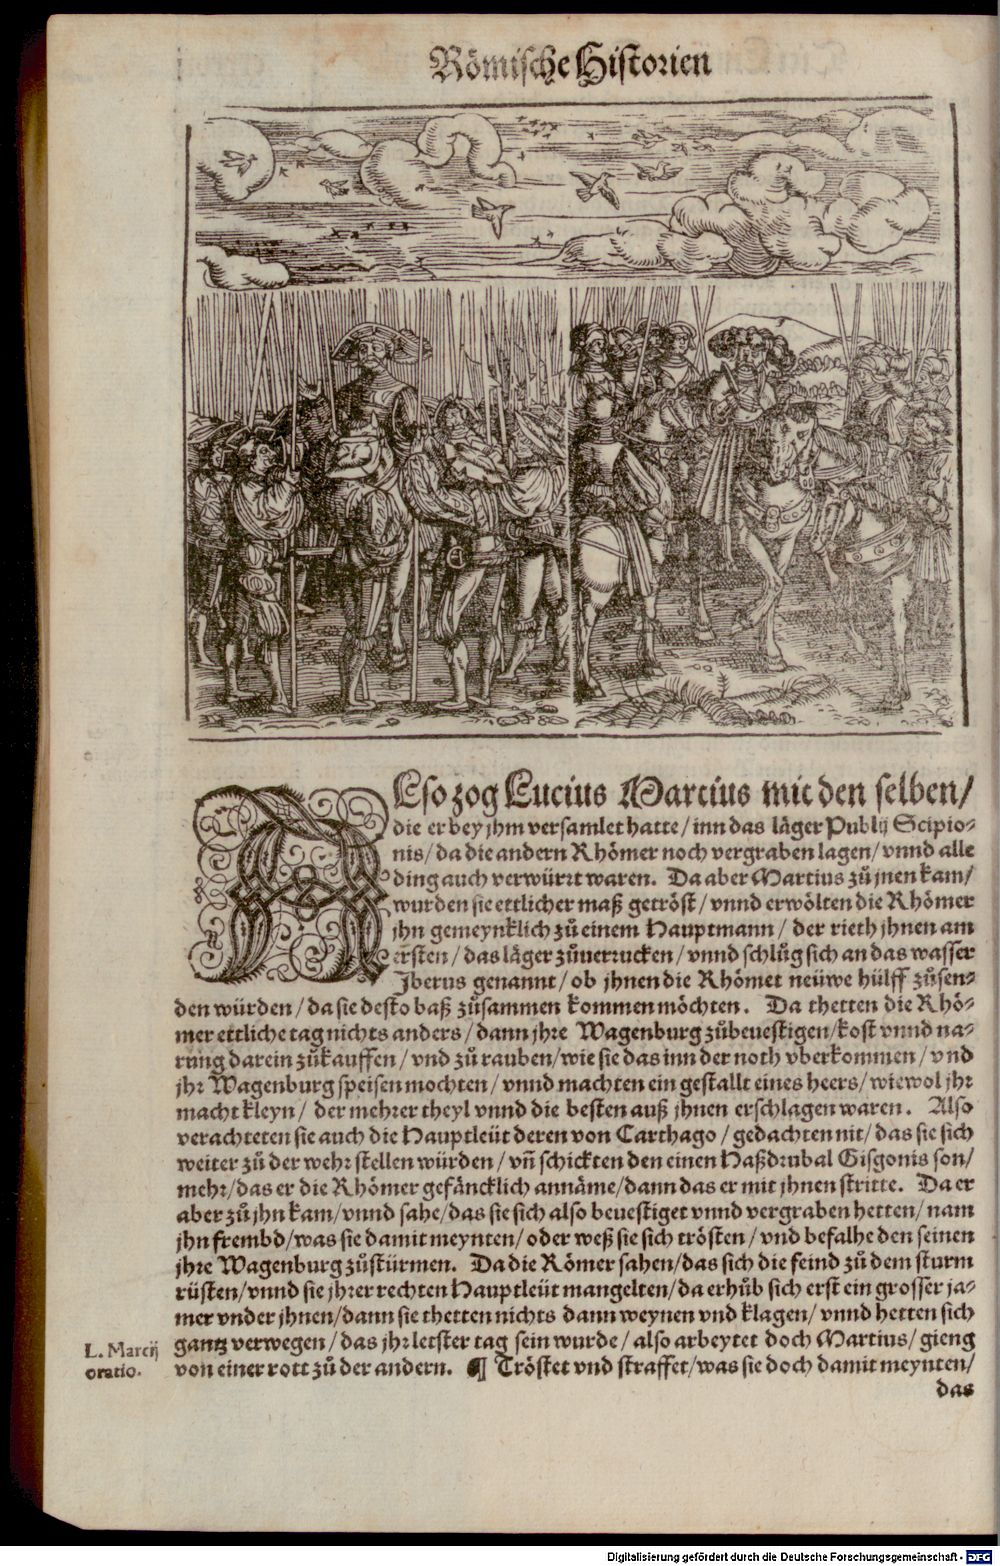 Römische Historien
ALso zog Lucius Martius mit den selben/
die er bey jhm versamlet hatte/ inn das läger Publij Scipio-
nis/ da die andern Rhömer noch vergraben lagen/ vnnd alle
ding auch verwürrt waren. Da aber Martius zů jnen kam/
wurden sie ettlicher maß getröst/ vnnd erwölten die Rhömer
jhn gemeynklich zů einem Hauptmann/ der rieth jhnen am
ersten/ das läger zůuerrucken/ vnnd schlůg sich an das wasser
Jberus genannt/ ob jhnen die Rhömer neüwe hülff zůsen-
den würden/ da sie desto baß zůsammen kommen möchten. Da thetten die Rhö-
mer ettliche tag nichts anders/ dann jhre Wagenburg zůbeuestigen/ kost vnnd na-
rung darein zůkauffen/ vnd zů rauben/ wie sie das inn der noth vberkommen/ vnd
jhr Wagenburg speisen mochten/ vnnd machten ein gestallt eines heers/ wiewol jhr
macht kleyn/ der mehrer theyl vnnd die besten auß jhnen erschlagen waren. Also
verachteten sie auch die Hauptleüt deren von Carthago/ gedachten nit/ das sie sich
weiter zů der wehr stellen würden/ vñ schickten den einen Haßdrubal Gisgonis son/
mehr/ das er die Rhömer gefäncklich annäme/ dann das er mit jhnen stritte. Da er
aber zů jhn kam/ vnnd sahe/ das sie sich also beuestiget vnnd vergraben hetten/ nam
jhn frembd/ was sie damit meynten/ oder weß sie sich trösten/ vnd befalhe den seinen
jhre Wagenburg zůstürmen. Da die Römer sahen/ das sich die feind zů dem sturm
rüsten/ vnnd sie jhrer rechten Hauptleüt mangelten/ da erhůb sich erst ein grosser ja-
mer vnder jhnen/ dann sie thetten nichts dann weynen vnd klagen/ vnnd hetten sich
gantz verwegen/ das jhr letster tag sein wurde/ also arbeytet doch Martius/ gieng
von einer rott zů der andern. ¶ Tröstet vnd straffet/ was sie doch damit meynten/
L. Marcij
oratio.
das
Digitalisierung gefördert durch die Deutsche Forschungsgemeinschaft - DFG